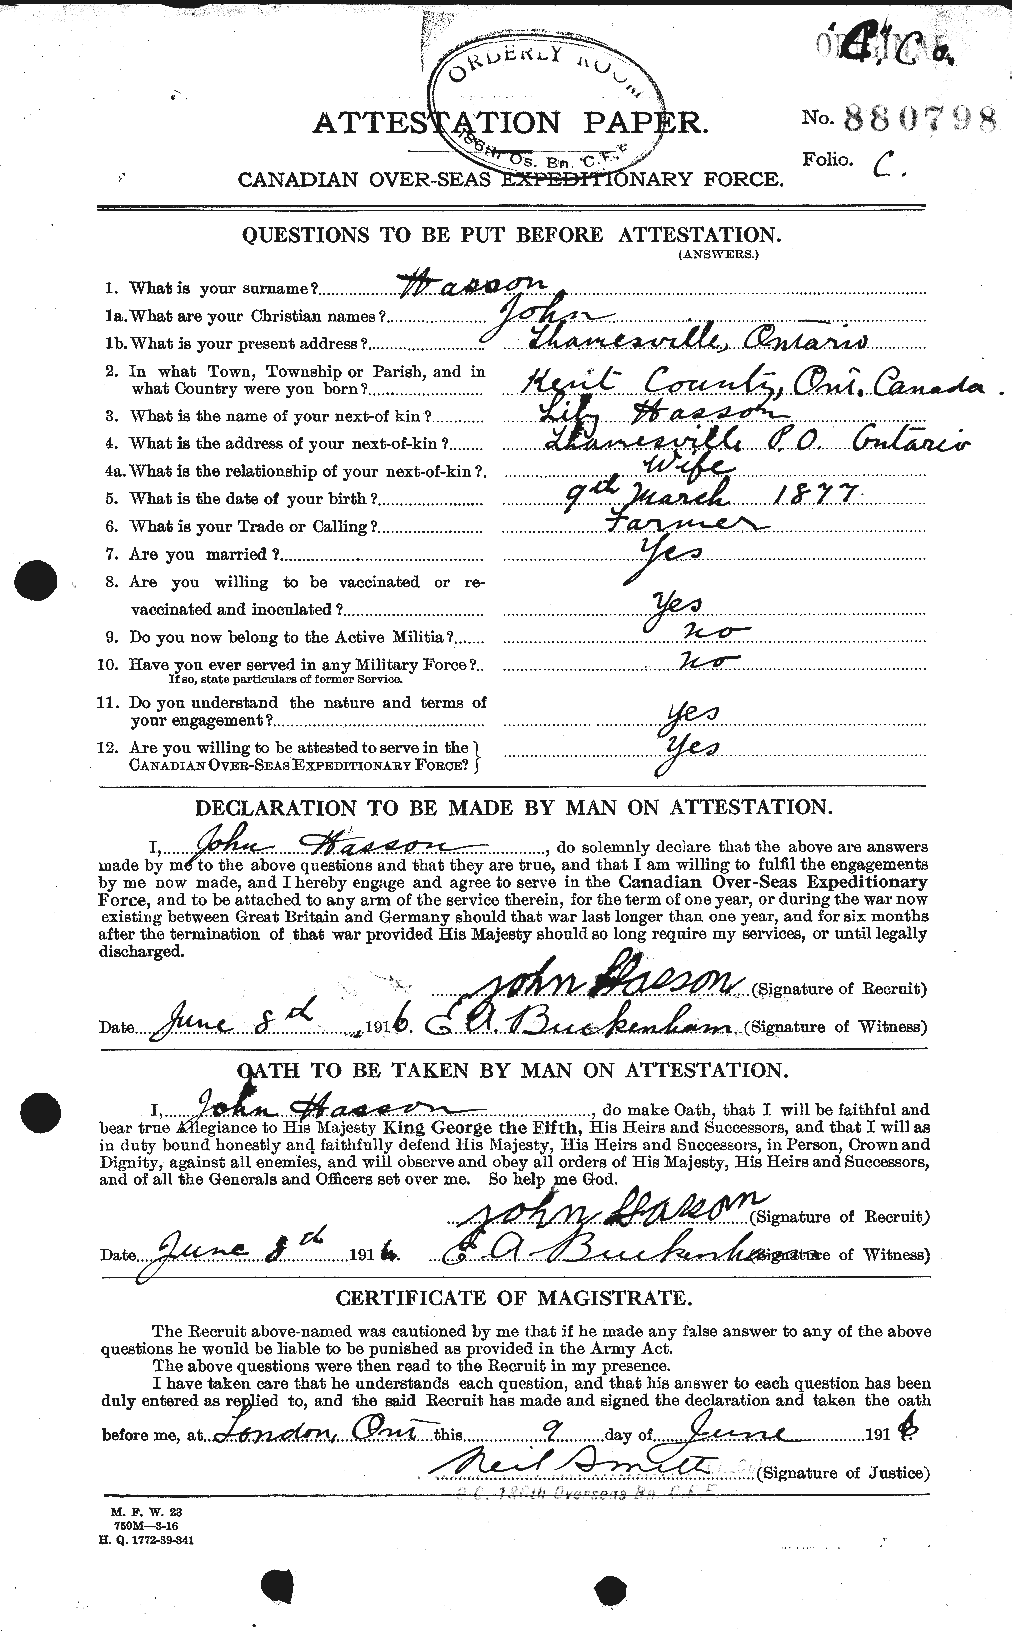 "C" Co.
ORDERLY ROOM
186th Os. Bn. C.E.F.
ATTESTATION PAPER.
No. 880798
Folio. C.
CANADIAN OVER-SEAS EXPEDITIONARY FORCE.
QUESTIONS TO BE PUT BEFORE ATTESTATION.
(ANSWERS.)
1. What is your surname? Hasson
1a. What are your Christian names? John
1b. What is your present address? Thamesville, Ontario
2. In what Town, Township or Parish, and in
what Country were you born? Kent County, Ont. Canada.
3. What is the name of your next-of kin? Lily Hasson
4. What is the address of your next-of-kin? Thamesville P.O. Ontario
4a. What is the relationship of your next-of-kin? Wife
5. What is the date of your birth? 9th March 1877.
6. What is your Trade or Calling? Farmer
7. Are you married? Yes
8. Are you willing to be vaccinated or re-
vaccinated and inoculated? Yes
9. Do you now belong to the Active Militia? No
10. Have you ever served in any Military Force? No
If so, state particulars of former Service.
11. Do you understand the nature and terms of
your engagement? Yes
12. Are you willing to be attested to serve in the
CANADIAN OVER-SEAS EXPEDITIONARY FORCE? Yes
DECLARATION TO BE MADE BY MAN ON ATTESTATION.
I, John Hasson, do solemnly declare that the above are answers
made by me to the above questions and that they are true, and that I am willing to fulfil the engagements
by me now made, and I hereby engage and agree to serve in the Canadian Over-Seas Expeditionary
Force, and to be attached to any arm of the service therein, for the term of one year, or during the war now
existing between Great Britain and Germany should that war last longer than one year, and for six months
after the termination of that war provided His Majesty should so long require my services, or until legally
discharged.
John Hasson (Signature of Recruit)
Date June 8th 1916. E A. Buckenham (Signature of Witness)
OATH TO BE TAKEN BY MAN ON ATTESTATION.
I, John Hasson, do make Oath, that I will be faithful and
bear true Allegiance to His Majesty King George the Fifth, His Heirs and Successors, and that I will as
in duty bound honestly and faithfully defend His Majesty, His Heirs and Successors, in Person, Crown and
Dignity, against all enemies, and will observe and obey all orders of His Majesty, His Heirs and Successors,
and of all the Generals and Officers set over me. So help me God.
John Hasson (Signature of Recruit)
Date June 8th 1916. E A Buckenham (Signature of Witness)
CERTIFICATE OF MAGISTRATE.
The Recruit above-named was cautioned by me that if he made any false answer to any of the above
questions he would be liable to be punished as provided in the Army Act.
The above questions were then read to the Recruit in my presence.
I have taken care that he understands each question, and that his answer to each question has been
duly entered as replied to, and the said Recruit has made and signed the declaration and taken the oath
before me, at London, Ont this 9 day of June 1916
Neil Smith (Signature of Justice)
O.C. 186th Overseas Bn. C.E.F.
M. F. W. 23
750M—3-16
H. Q. 1772-39-841